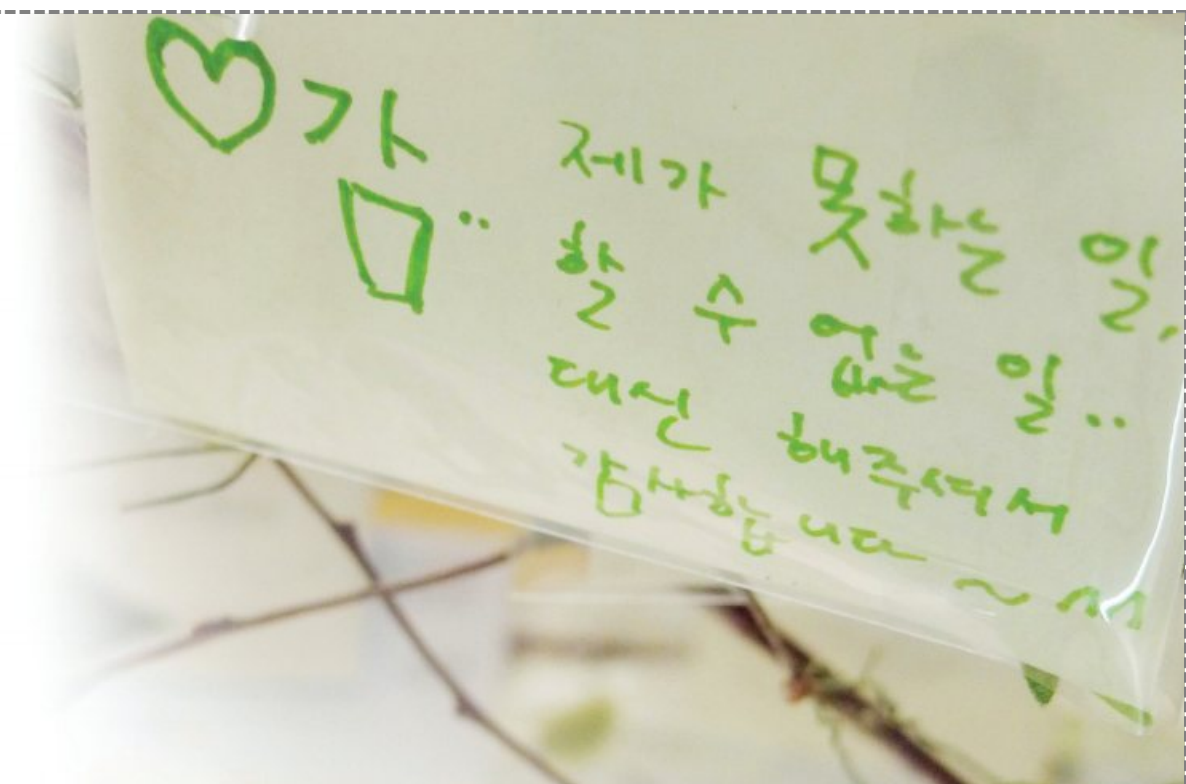 ♡감¨
제가 못하는 일,
할 수 없는 일..
대신 해주셔서
감사합니다~^^